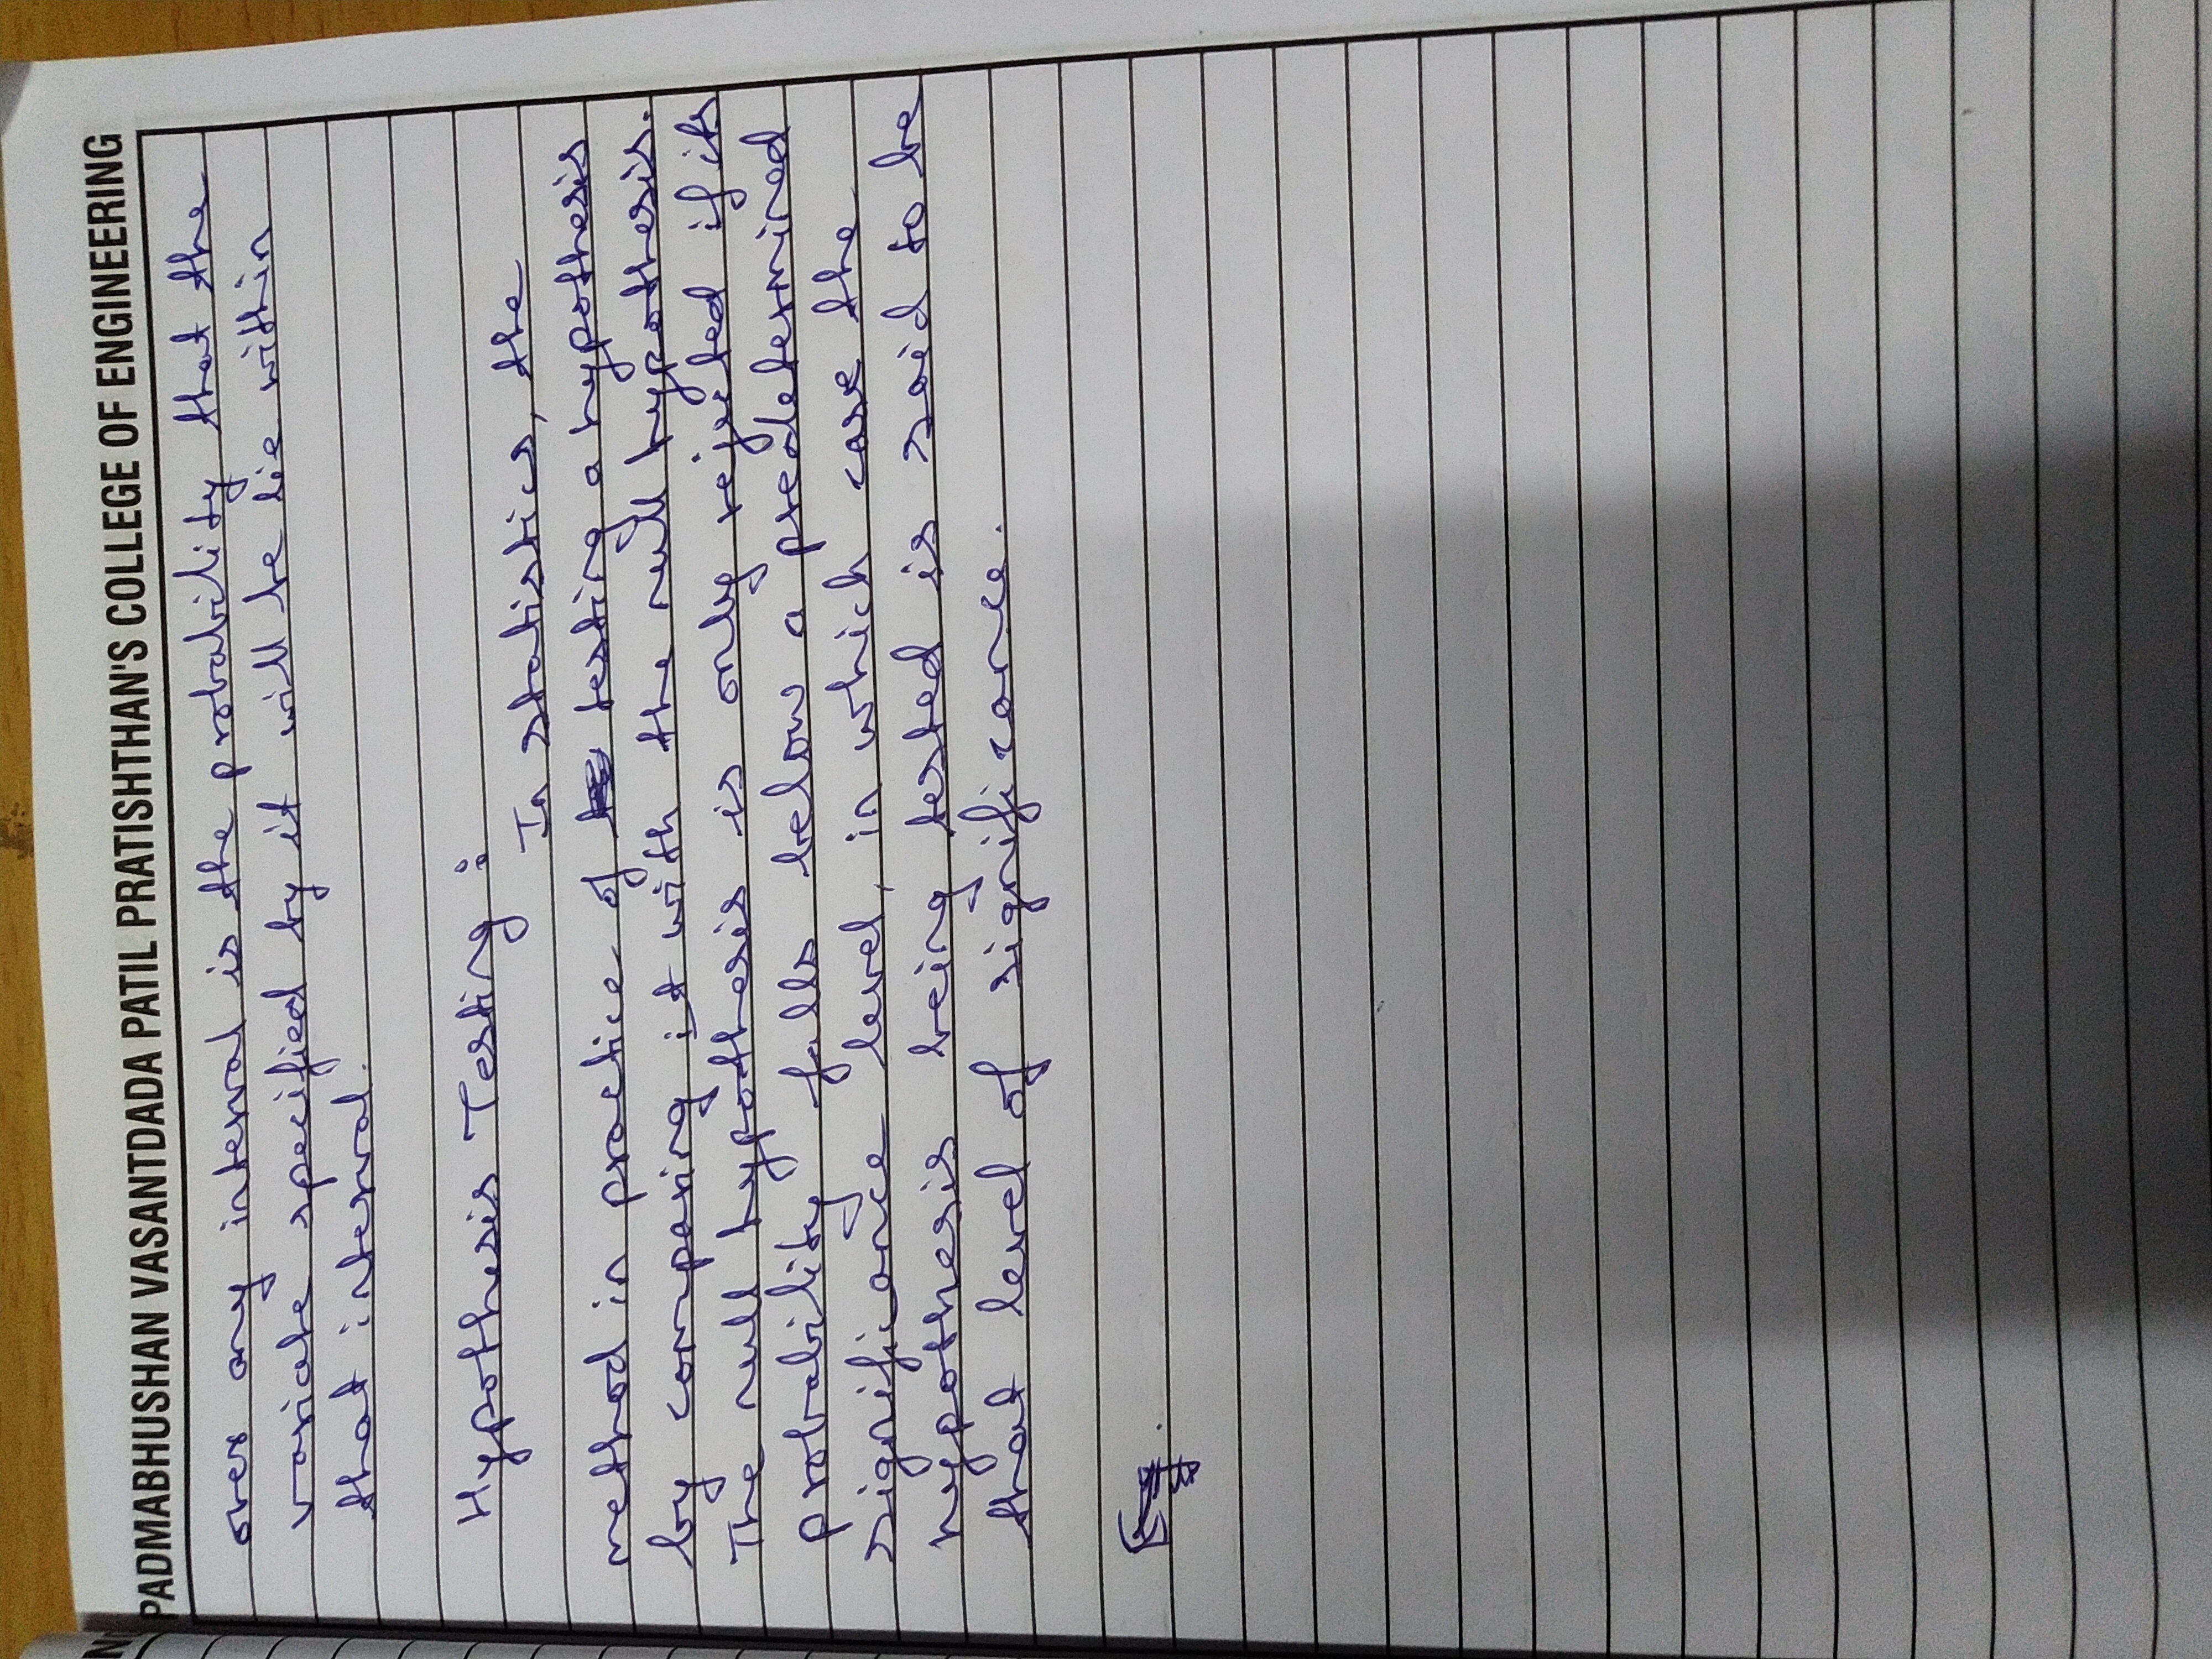 PADMABHUSHAN VASANTDADA PATIL PRATISHTHAN'S COLLEGE OF ENGINEERING
over any interval is the probability that the
variate specified by it will be lie within
that interval.
Hypothesis Testing :
In statistics, the
method in practice of testing a hypothesis
by comparing it with the null hypothesis.
The null hypothesis is only rejected if its
probability falls below a predetermined
significance level, in which case the
hypothesis being tested is said to be
that level of significance.